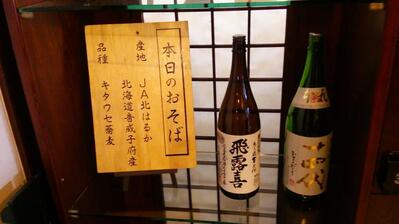 本日のおそば
産地
JA北はるか
北海道音威子府産
品種
キタワセ蕎麦
飛露喜
十四代